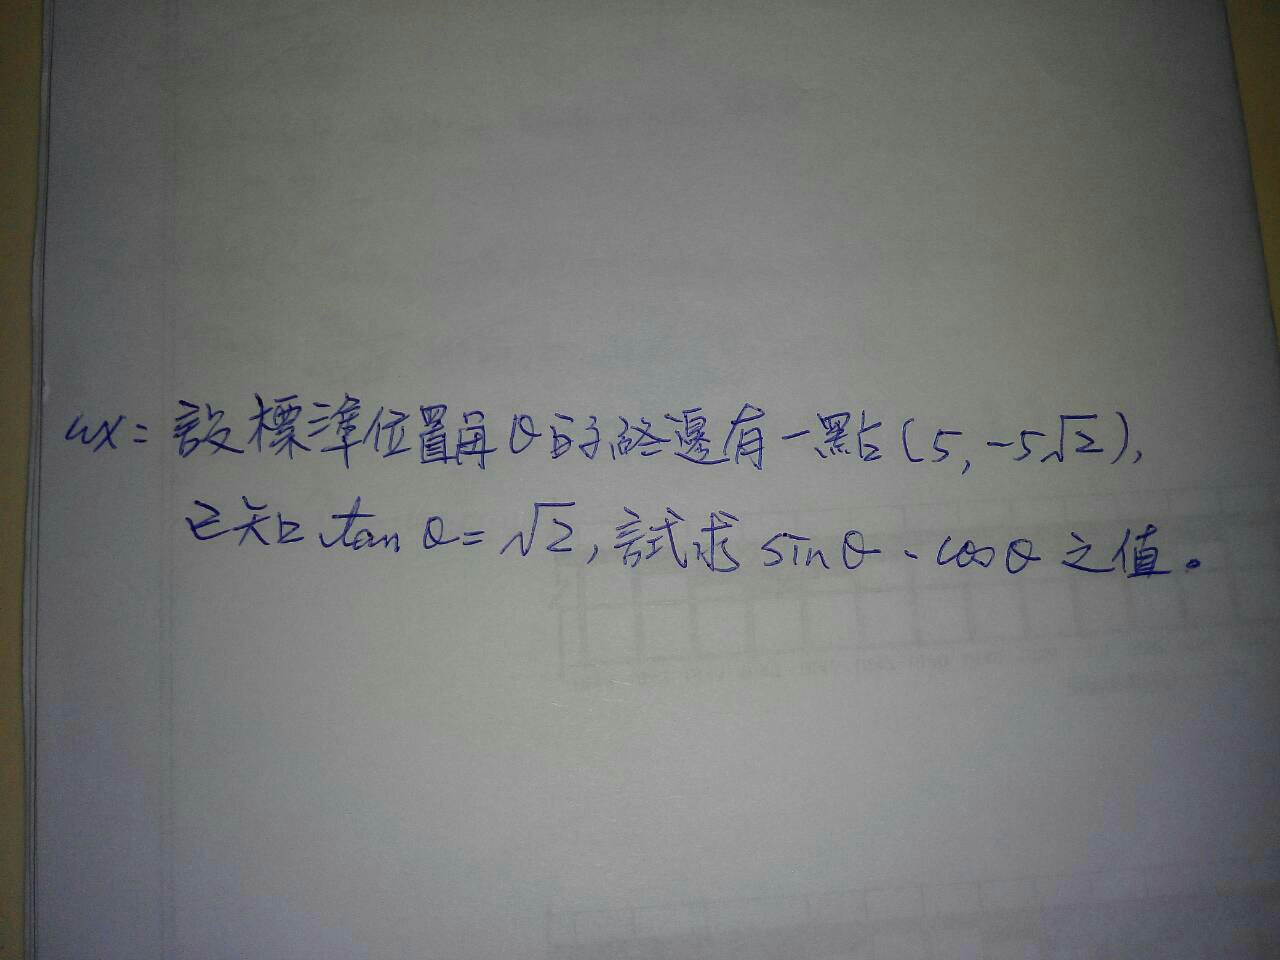 ex: 設標準位置角θ的終邊有一點(5, -5√2),
已知 tan θ = √2, 試求 sinθ、cosθ 之值。